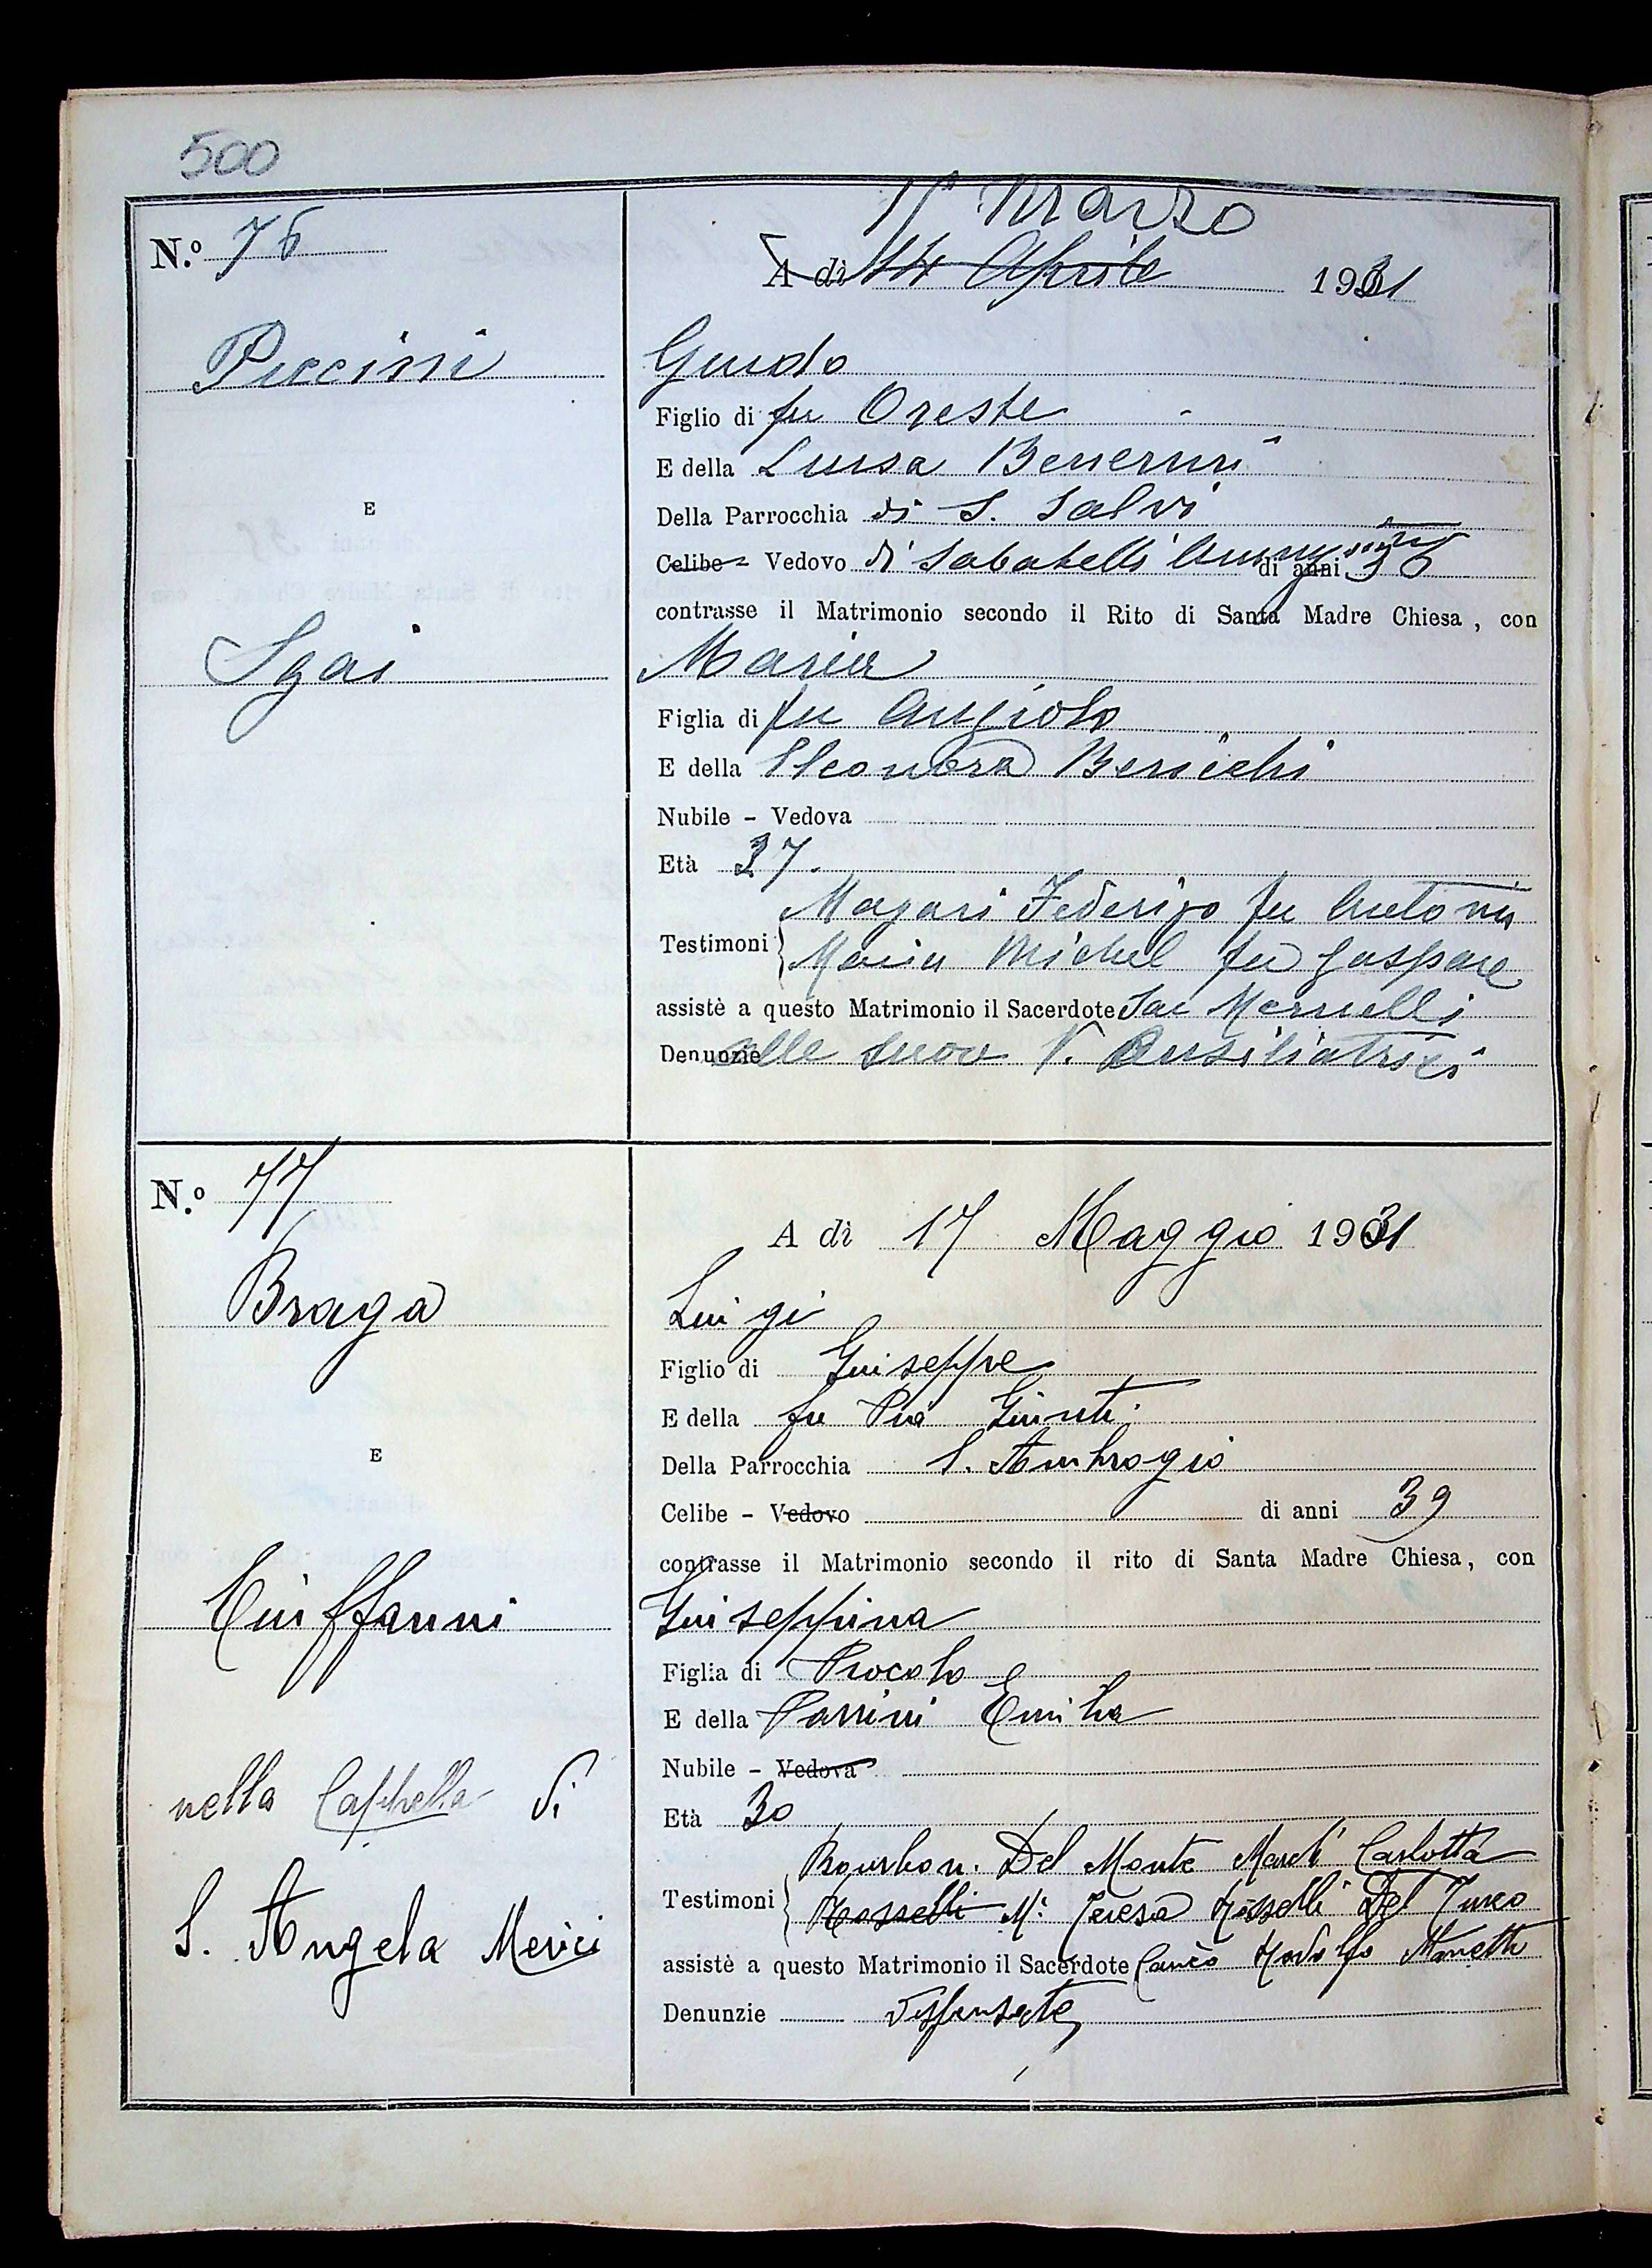 500
N.º 76
Marzo
A dì 14 Aprile 1931
Puccini
Guido
Figlio di fu Oreste
E della Luisa
Della Parrocchia di S. Salvi
E
Celibe - Vedovo di Sabatelli di anni
contrasse il Matrimonio secondo il Rito di Santa Madre Chiesa, con
Sgai
Maria
Figlia di fu Angiolo
E della Eleonora
Nubile - Vedova
Età 27.
Magari Federigo fu Antonio
Testimoni
Maria Michel fu Gaspare
assistè a questo Matrimonio il Sacerdote Sac
Denunzie alle suore V. Ausiliatrici
N.º 77
A dì 17 Maggio 1931
Braga
Luigi
Figlio di Giuseppe
E della fu Pia Giunti
Della Parrocchia S. Ambrogio
E
Celibe - Vedovo di anni 39
contrasse il Matrimonio secondo il rito di Santa Madre Chiesa, con
Ciuffanni
Giuseppina
Figlia di Procolo
E della Parrini Emilia
Nubile - Vedova
nella Cappella di
Età 30
Bourbon. Del Monte Carlotta
Testimoni
Rosselli M.ª Teresa Rosselli Del Turco
S. Angela Merici
assistè a questo Matrimonio il Sacerdote Rodolfo
Denunzie dispensate